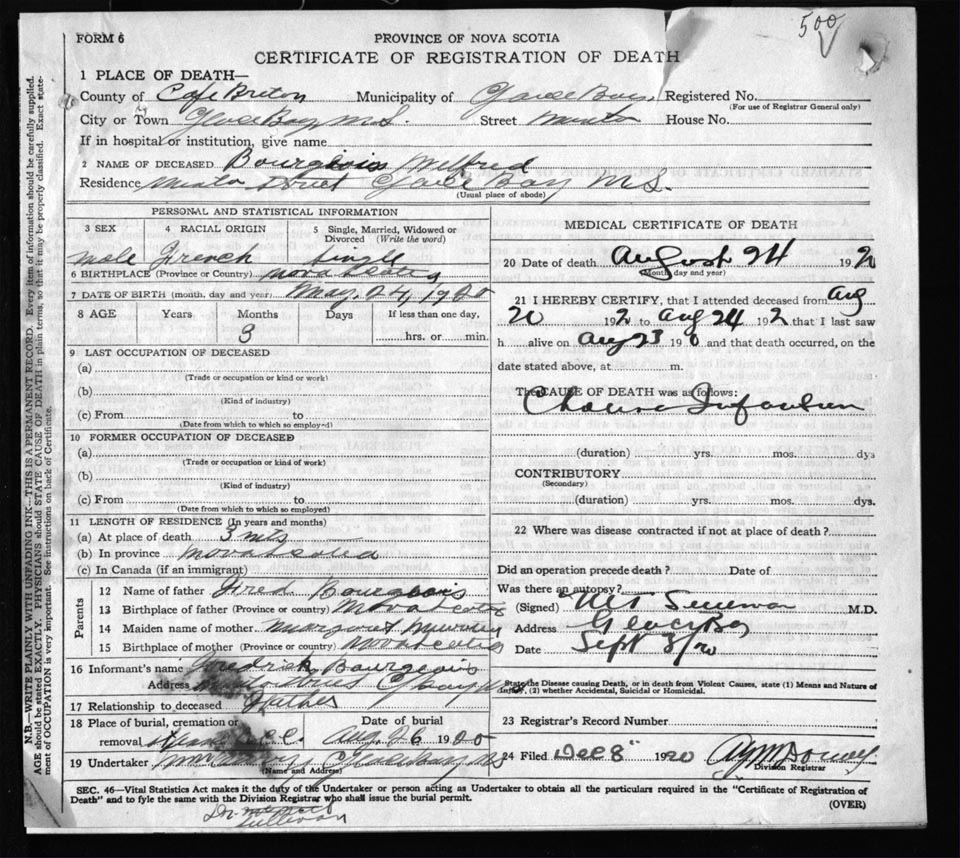 500
FORM 6
PROVINCE OF NOVA SCOTIA
CERTIFICATE OF REGISTRATION OF DEATH
1 PLACE OF DEATH—
County of Cape Breton Municipality of Glace Bay. Registered No.
(For use of Registrar General only)
City or Town Glace Bay, N.S. Street Minto House No.
If in hospital or institution, give name
2 NAME OF DECEASED Bourgeois Wilfred
Residence Minto Street Glace Bay N.S.
(Usual place of abode)
PERSONAL AND STATISTICAL INFORMATION
3 SEX 4 RACIAL ORIGIN 5 Single, Married, Widowed or Divorced (Write the word)
male French Single
6 BIRTHPLACE (Province or Country) Nova Scotia
7 DATE OF BIRTH (month, day and year) May. 24, 1920
8 AGE Years Months Days If less than one day,
3 hrs. or min.
9 LAST OCCUPATION OF DECEASED
(a)
(Trade or occupation or kind or work)
(b)
(Kind of industry)
(c) From to
(Date from which to which so employed)
10 FORMER OCCUPATION OF DECEASED
(a)
(Trade or occupation or kind or work)
(b)
(Kind of industry)
(c) From to
(Date from which to which so employed)
11 LENGTH OF RESIDENCE (In years and months)
(a) At place of death 3 mts
(b) In province Nova Scotia
(c) In Canada (if an immigrant)
Parents
12 Name of father Fred Bourgeois
13 Birthplace of father (Province or country) Nova Scotia
14 Maiden name of mother Margaret
15 Birthplace of mother (Province or country) Nova Scotia
16 Informant's name Fredrick Bourgeois
Address Minto Street G. Bay N.S.
17 Relationship to deceased Father
18 Place of burial, cremation or removal Date of burial
Aug. 26 1920
19 Undertaker Glace Bay N.S
(Name and Address)
MEDICAL CERTIFICATE OF DEATH
20 Date of death August 24 192
(Month, day and year)
21 I HEREBY CERTIFY, that I attended deceased from Aug
20 192 to Aug 24 192 that I last saw
h alive on Aug 23 19 and that death occurred, on the
date stated above, at m.
The CAUSE OF DEATH was as follows:
Cholera Infantum
(duration) yrs. mos. dys
CONTRIBUTORY
(Secondary)
(duration) yrs. mos. dys.
22 Where was disease contracted if not at place of death?
Did an operation precede death? Date of
Was there an autopsy?
(Signed) M.D.
Address Glace Bay
Date Sept 3/20
State the Disease causing Death, or in death from Violent Causes, state (1) Means and Nature of Injury, (2) whether Accidental, Suicidal or Homicidal.
23 Registrar's Record Number
24 Filed Dec 8" 1920
Division Registrar
SEC. 46—Vital Statistics Act makes it the duty of the Undertaker or person acting as Undertaker to obtain all the particulars required in the "Certificate of Registration of
Death" and to fyle the same with the Division Registrar who shall issue the burial permit.
(OVER)
Dr.
Sullivan
N.B.—WRITE PLAINLY WITH UNFADING INK—THIS IS A PERMANENT RECORD. Every item of information should be carefully supplied.
AGE should be stated EXACTLY. PHYSICIANS should STATE CAUSE OF DEATH in plain terms, so that it may be properly classified. Exact state-
ment of OCCUPATION is very important. See instructions on back of Certificate.